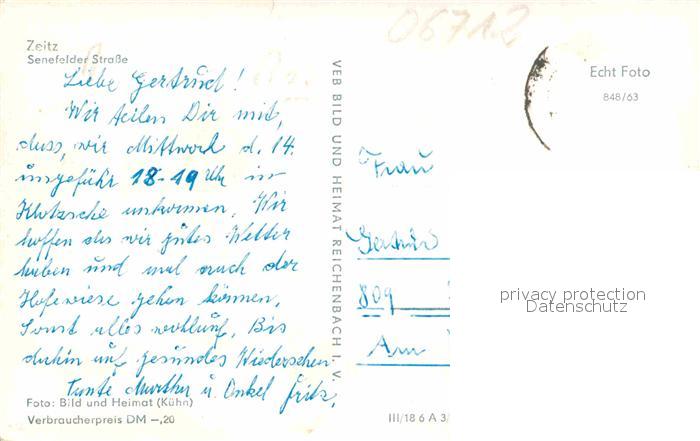 06712
Zeitz
Senefelder Straße
Liebe Gertrud!
Wir teilen Dir mit,
dass, wir Mittwoch d. 14.
ungefähr 18-19 Uhr in
Klotzsche ankommen. Wir
hoffen das wir gutes Wetter
haben und mal nach der
Hofewiese gehen können,
Sonst alles wohlauf, Bis
dahin auf gesundes Wiedersehen
Tante Martha u. Onkel Fritz,
Foto: Bild und Heimat (Kühn)
Verbraucherpreis DM —,20
VEB BILD UND HEIMAT REICHENBACH I. V.
Echt Foto
848/63
Frau
Gertrud
809
Am
III/18 6 A 3/
privacy protection
Datenschutz